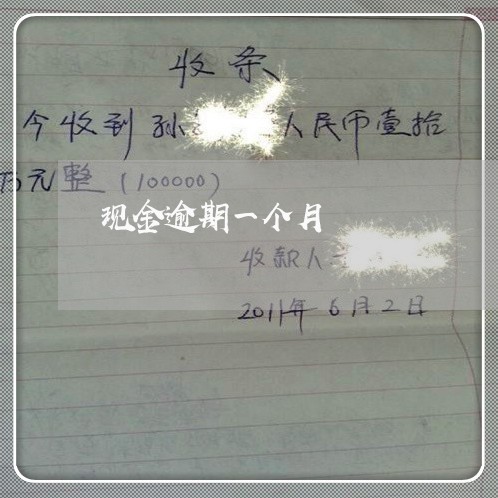 收条
今收到孙 人民币壹拾
万元整(100000)
现金逾期一个月
收款人
2011年6月2日